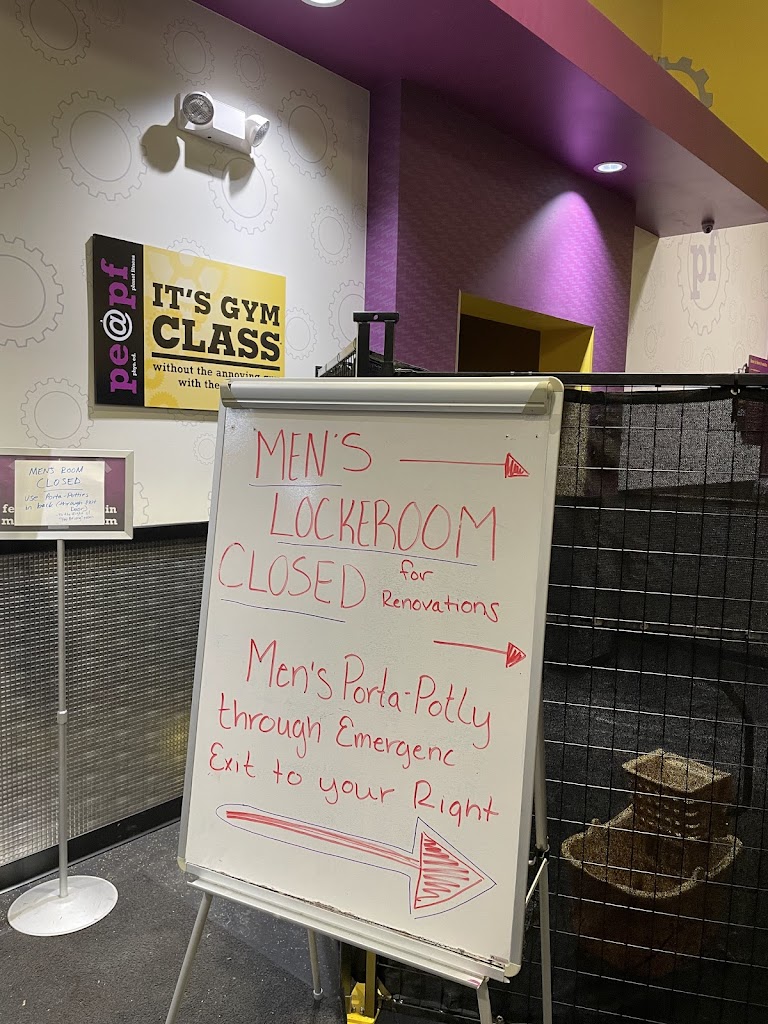 pe@pf
phys. ed.
planet fitness
IT'S GYM
CLASS
without the annoying
with the
pf
MEN'S ROOM
CLOSED
USE PORTA-POTTIES
in back (through exit
Door)
MEN'S
LOCKEROOM
CLOSED for
Renovations
Men's Porta-Potty
through Emergenc
Exit to your Right